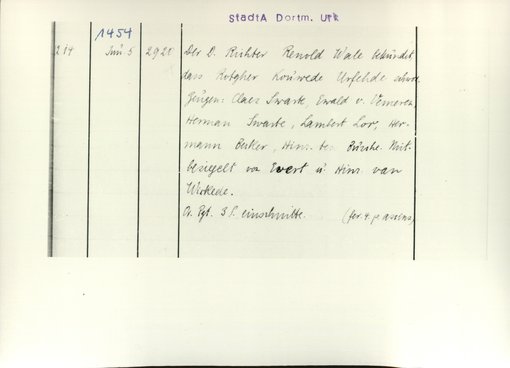 StadtA Dortm. Urk
1454
214 Juni 5 2920 Der D. Richter Renold Wale bekundet,
dass Rotgher Konwede Urfehde schwört
Zeugen: Claes Swarte, Ewald v. Vemeren,
Herman Swarte, Lambert Lor, Her-
mann Becker, Hinr. Mit-
besiegelt von Evert u Hinr. van
Wickede.
Or. Pgt. 3 S. einschnitte. (fer. 4. p